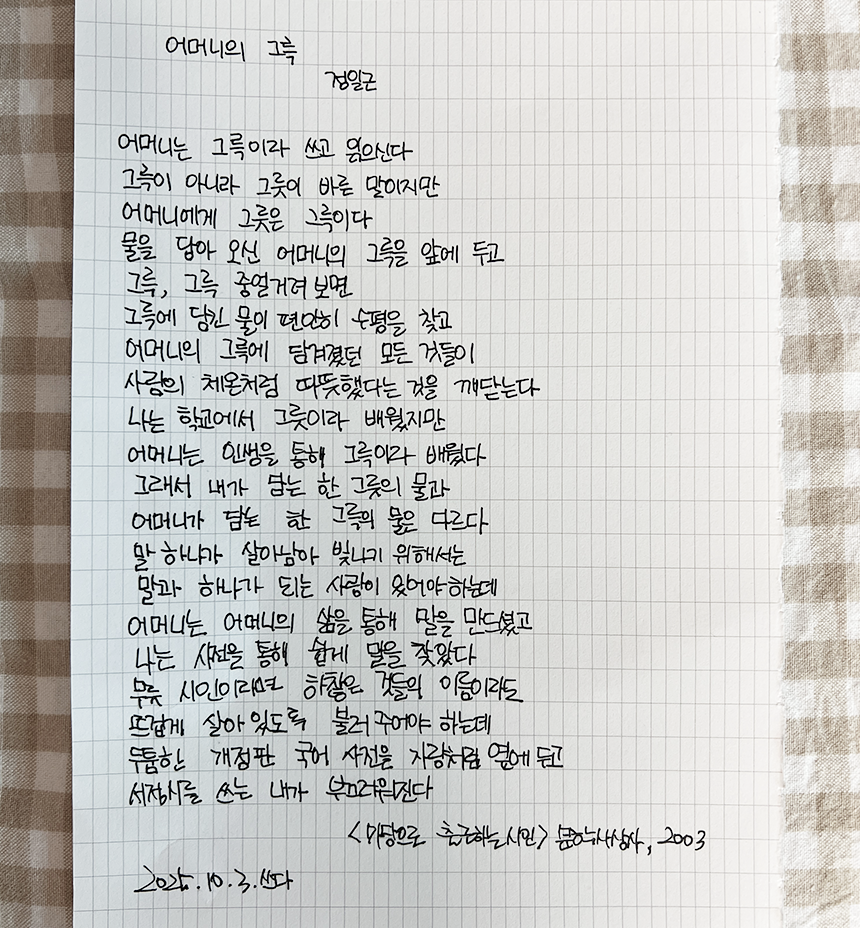 어머니의 그륵
정일근
어머니는 그륵이라 쓰고 읽으신다
그륵이 아니라 그릇이 바른 말이지만
어머니에게 그릇은 그륵이다
물을 담아 오신 어머니의 그륵을 앞에 두고
그륵, 그륵 중얼거려 보면
그륵에 담긴 물이 편안히 수평을 찾고
어머니의 그륵에 담겨졌던 모든 것들이
사람의 체온처럼 따뜻했다는 것을 깨닫는다
나는 학교에서 그릇이라 배웠지만
어머니는 인생을 통해 그륵이라 배웠다
그래서 내가 담는 한 그릇의 물과
어머니가 담는 한 그륵의 물은 다르다
말 하나가 살아남아 빛나기 위해서는
말과 하나가 되는 사랑이 있어야 하는데
어머니는 어머니의 삶을 통해 말을 만드셨고
나는 사전을 통해 쉽게 말을 찾았다
무릇 시인이라면 하찮은 것들의 이름이라도
뜨겁게 살아 있도록 불러 주어야 하는데
두툼한 개정판 국어 사전을 자랑처럼 옆에 두고
서정시를 쓰는 내가 부끄러워진다
<마당으로 출근하는 시인> 문학사상사, 2003
2025.10.3.쓰다